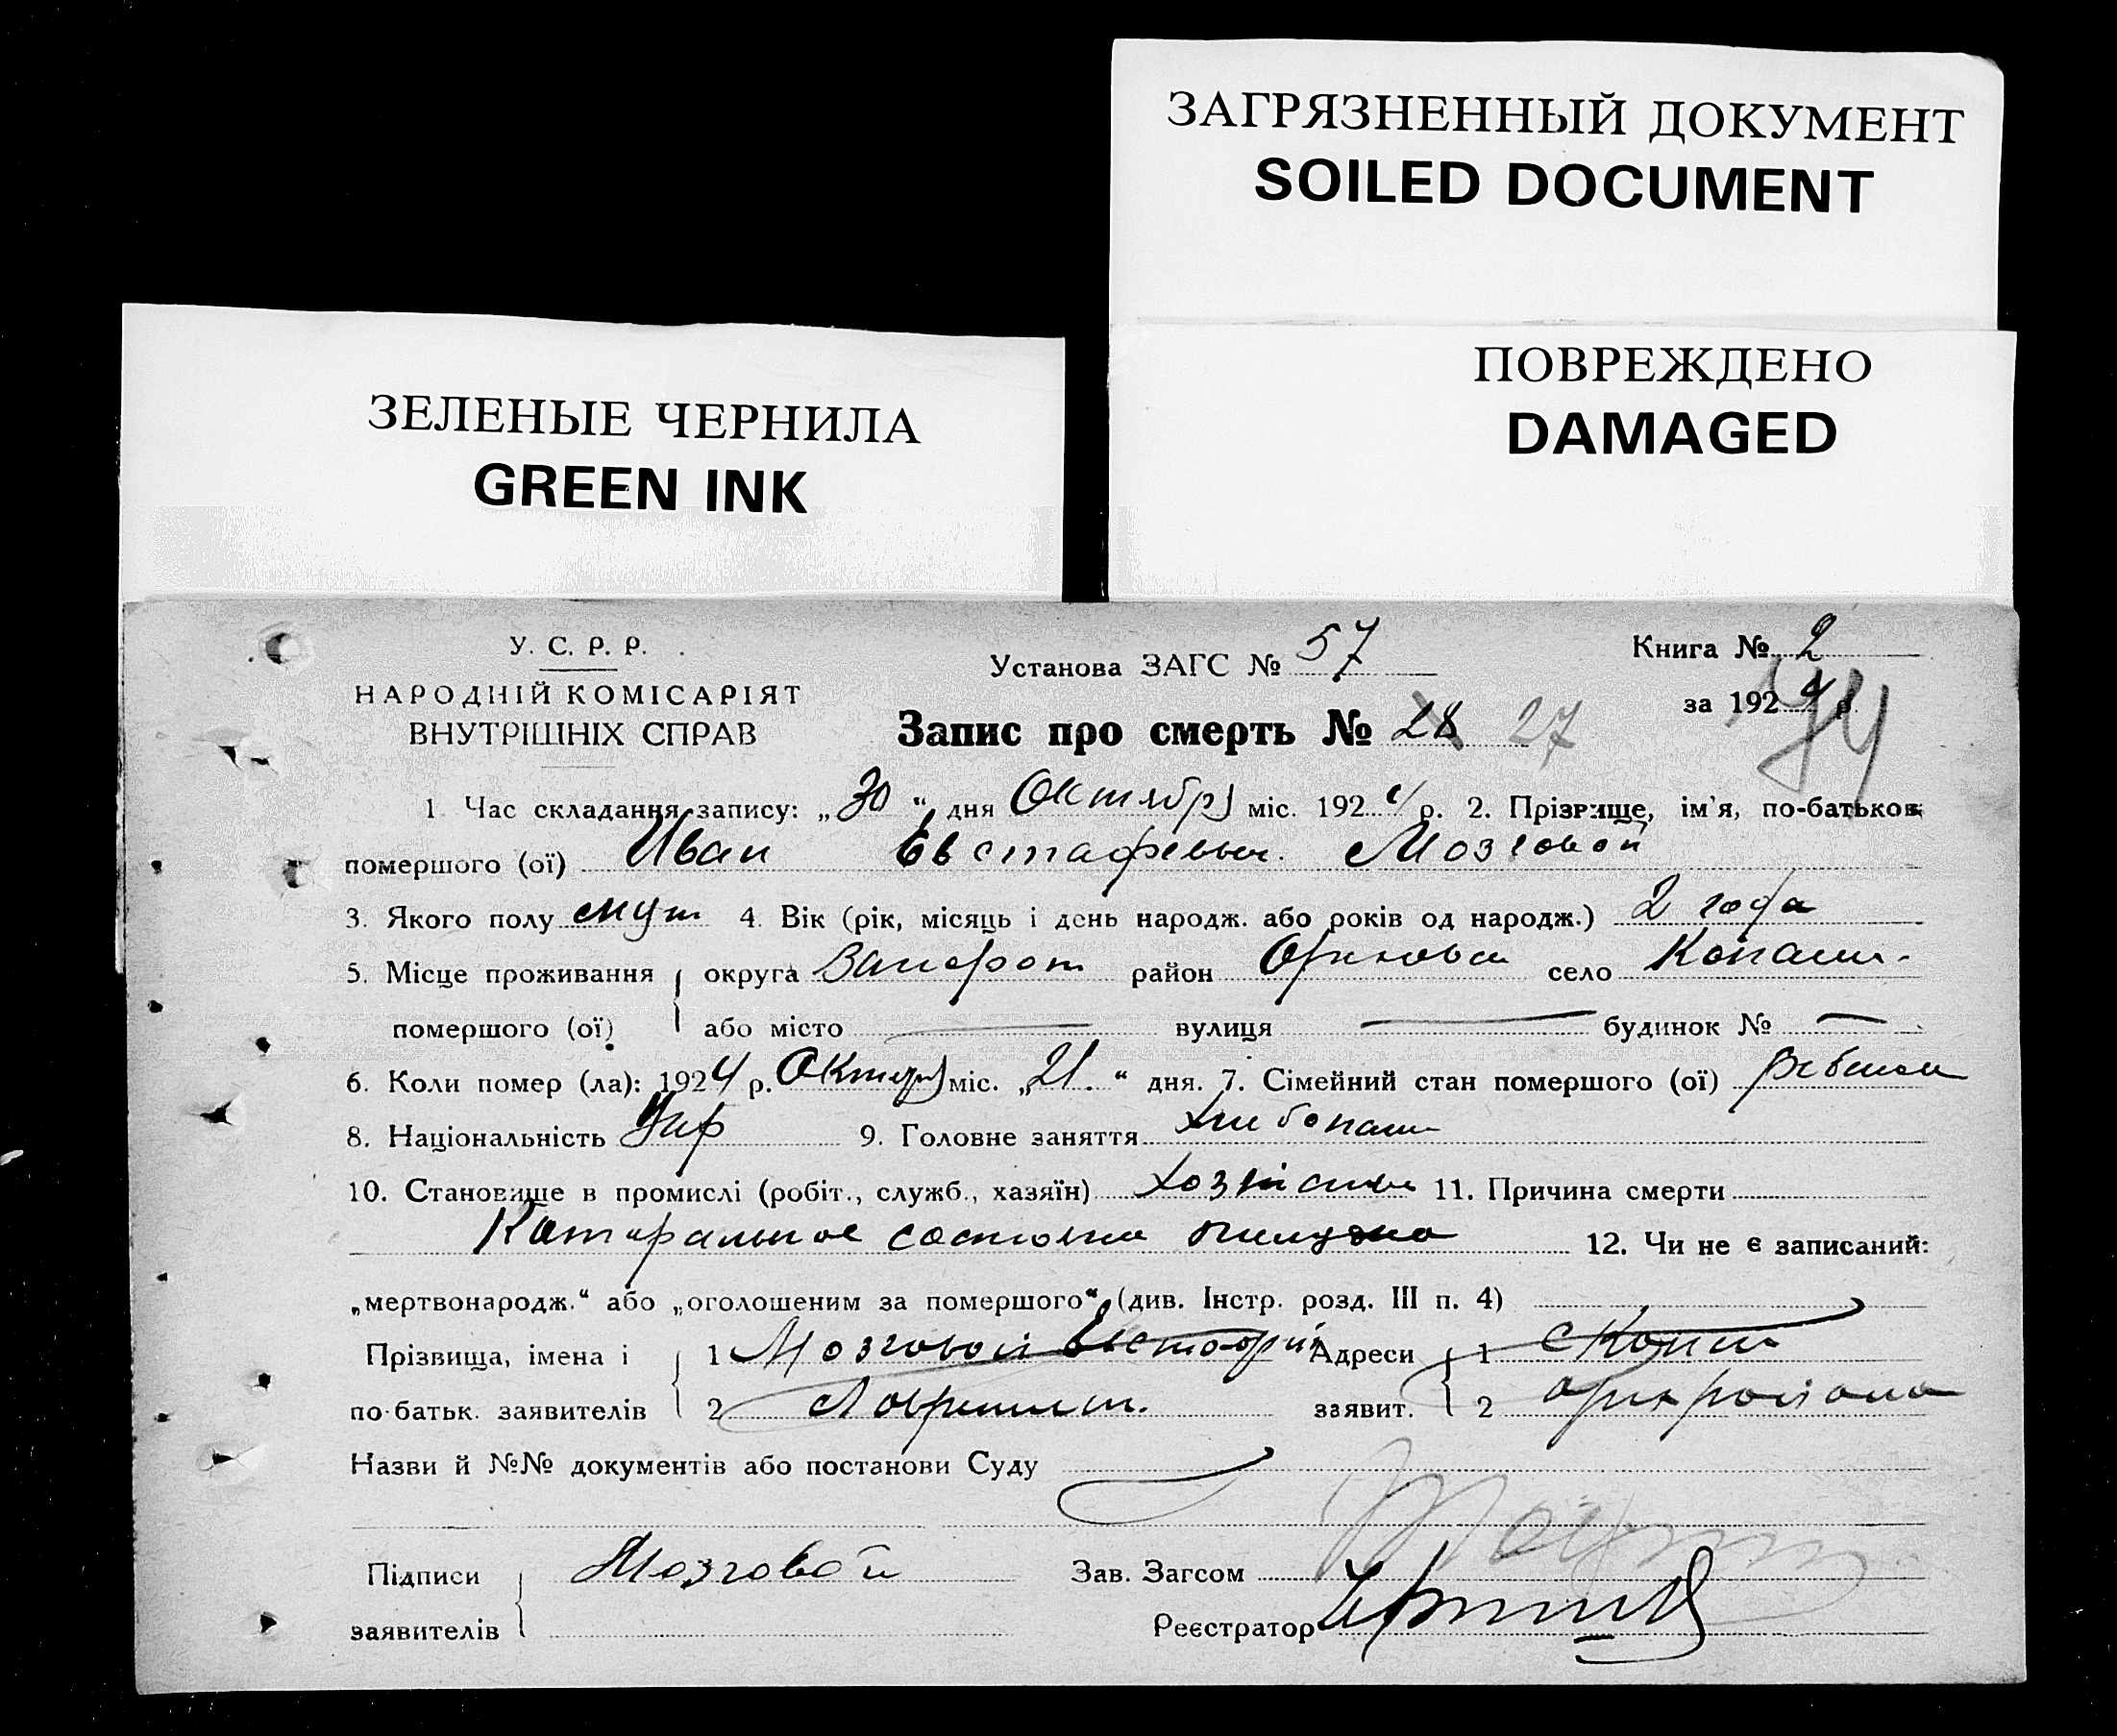 ЗАГРЯЗНЕННЫЙ ДОКУМЕНТ
SOILED DOCUMENT
ПОВРЕЖДЕНО
DAMAGED
ЗЕЛЕНЫЕ ЧЕРНИЛА
GREEN INK
У. С. Р. Р.
НАРОДНІЙ КОМІСАРІЯТ
ВНУТРІШНІХ СПРАВ
Установа ЗАГС № 57
Книга № 2
за 1924 р.
Запис про смерть № 28 27
1. Час складання запису: „30“ дня Октября міс. 1924 р. 2. Прізвище, ім'я, по-батьков
помершого (ої) Иван Евстафьевич Мозговой
3. Якого полу муж 4. Вік (рік, місяць і день народж. або років од народж.) 2 года
5. Місце проживання округа Запорож район Орехов село Копани
помершого (ої) або місто — вулиця — будинок № —
6. Коли помер (ла): 1924 р. Октяря міс. „21“ дня. 7. Сімейний стан помершого (ої) ребенок
8. Національність Укр 9. Головне заняття хлибопаш
10. Становище в промислі (робіт., служб., хазяїн) 11. Причина смерти
Катаральное состояние желудка 12. Чи не є записаний:
„мертвонародж.“ або „оголошеним за помершого“ (див. Інстр. розд. III п. 4)
Прізвища, імена і 1 Мозговой Евстафий Адреси 1 с Копани
по-батьк. заявителів 2 заявит. 2
Назви й №№ документів або постанови Суду
Підписи Мозговой Зав. Загсом
заявителів Реєстратор